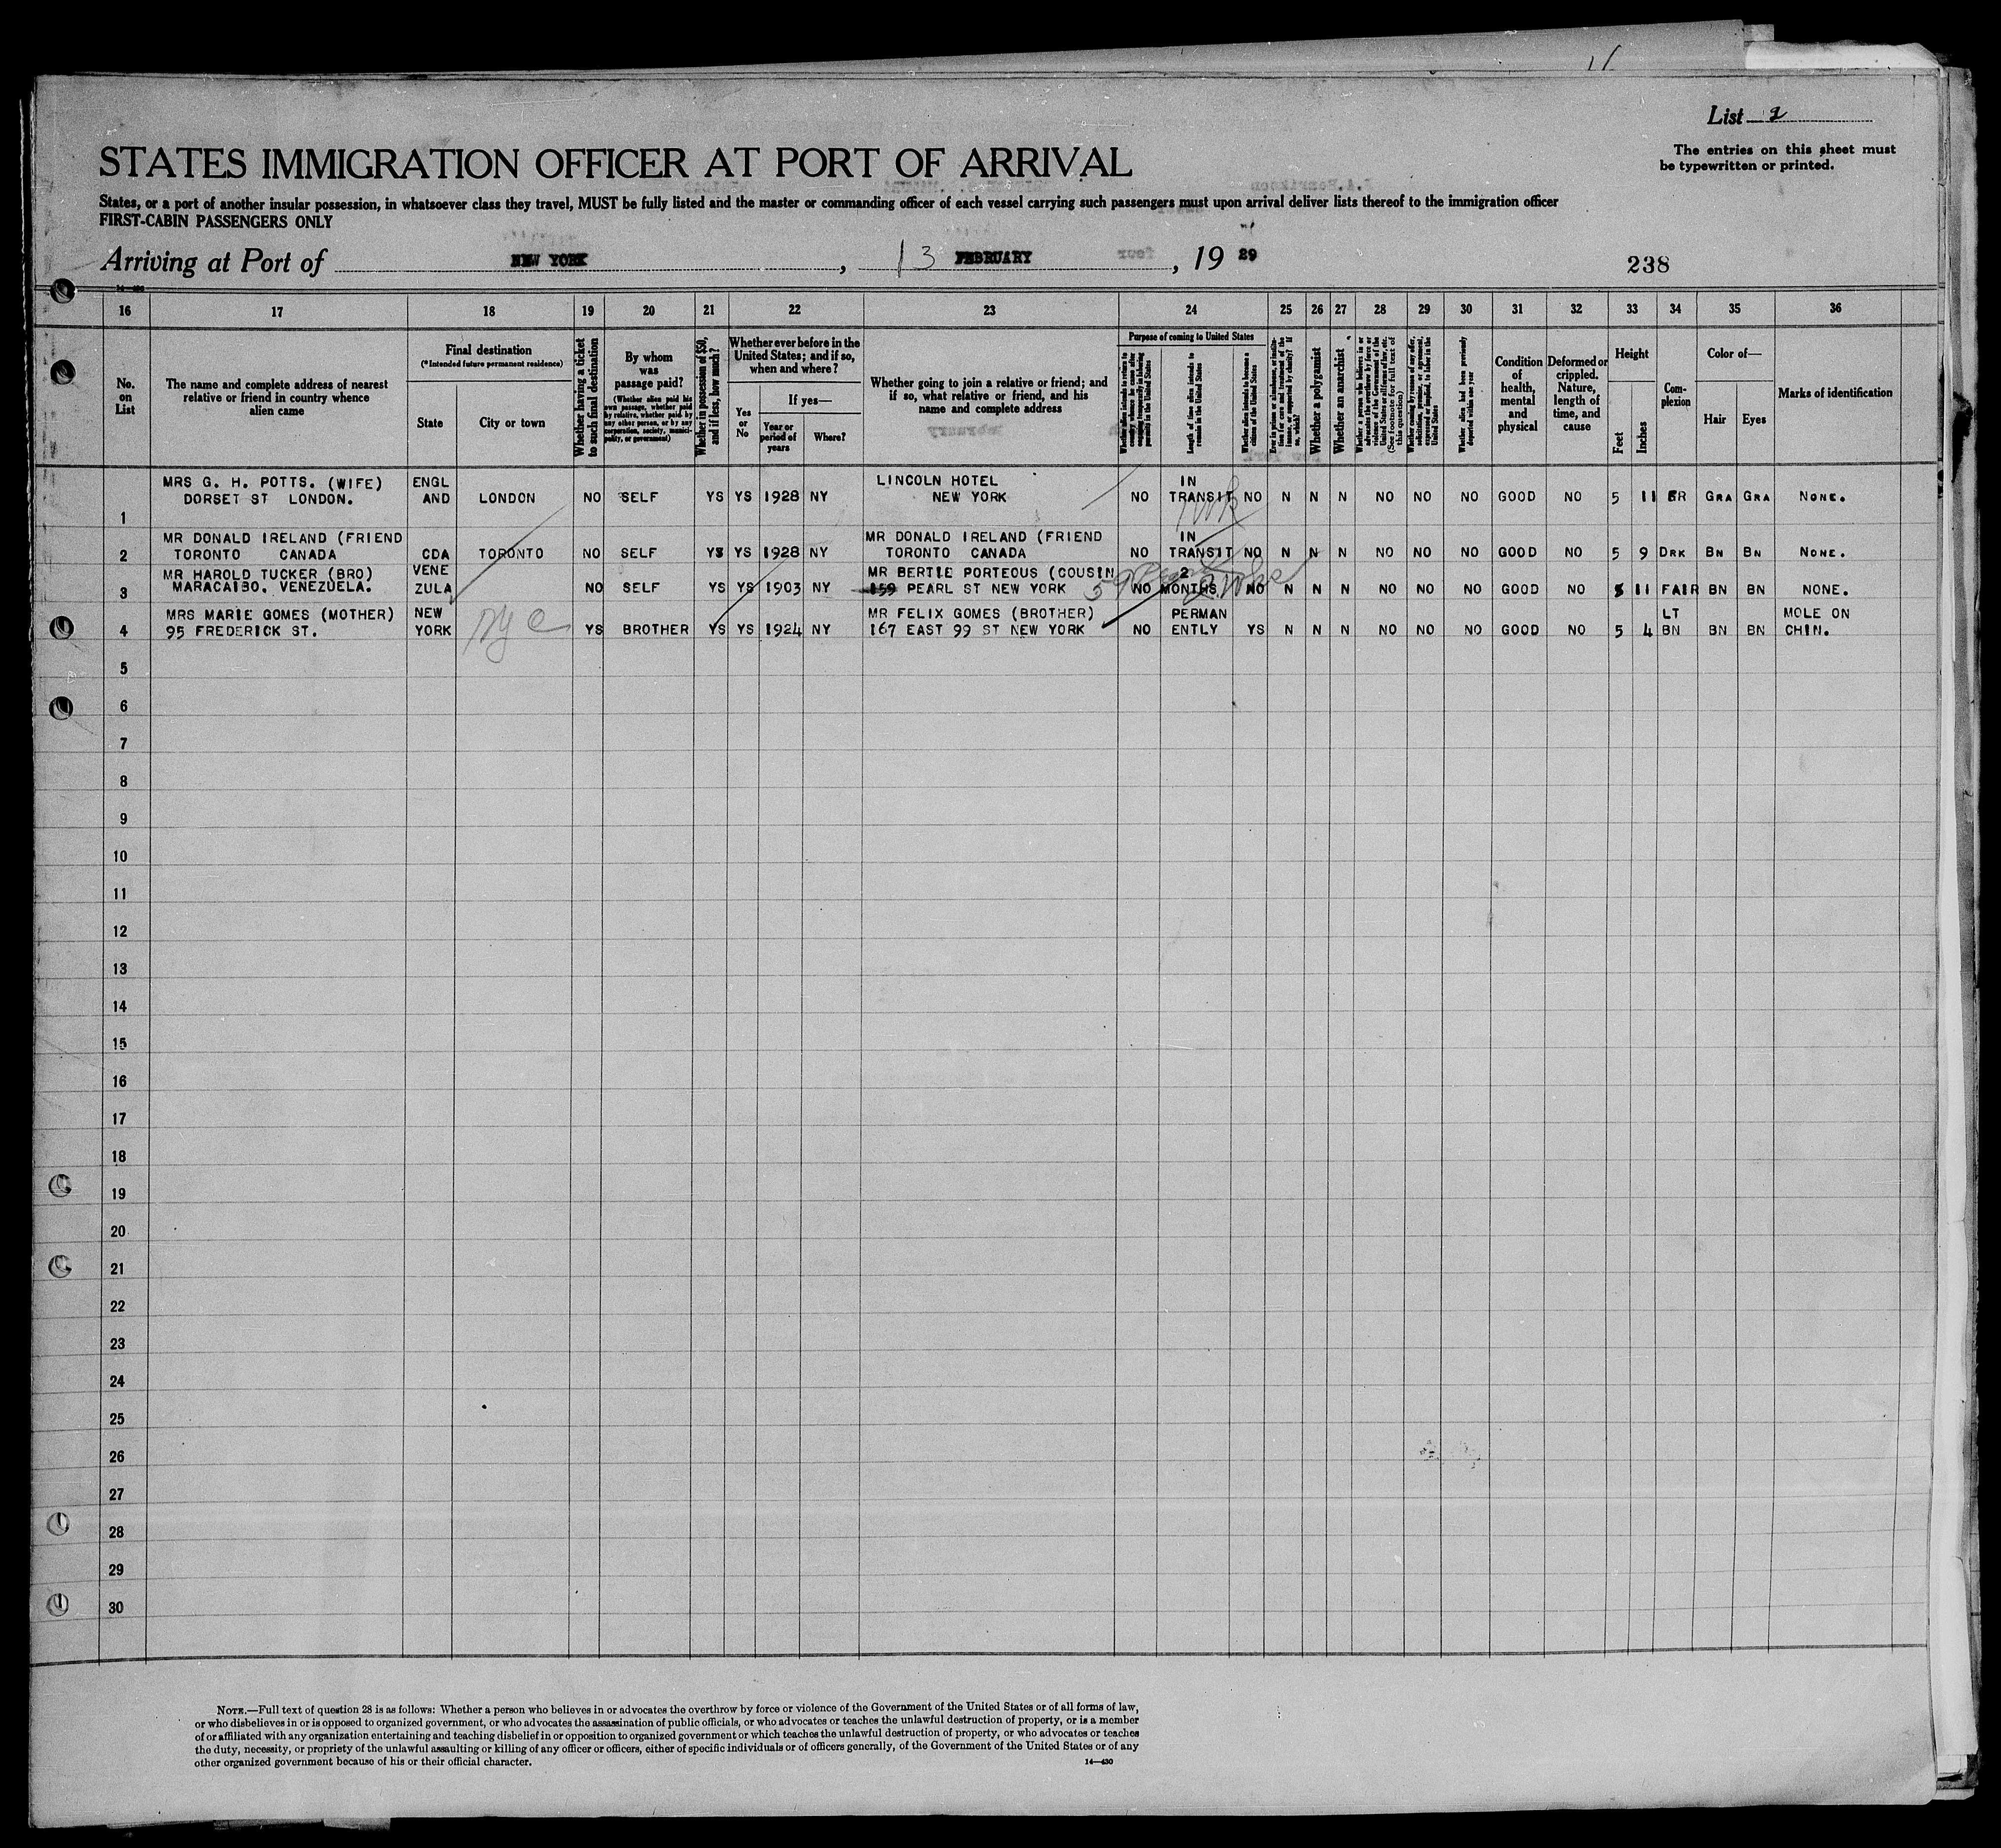 List 2
The entries on this sheet must
be typewritten or printed.
STATES IMMIGRATION OFFICER AT PORT OF ARRIVAL
States, or a port of another insular possession, in whatsoever class they travel, MUST be fully listed and the master or commanding officer of each vessel carrying such passengers must upon arrival deliver lists thereof to the immigration officer
FIRST-CABIN PASSENGERS ONLY
Arriving at Port of NEW YORK, 13 FEBRUARY, 19 29
238
16 17 18 19 20 21 22 23 24 25 26 27 28 29 30 31 32 33 34 35 36
No. on List
The name and complete address of nearest relative or friend in country whence alien came
Final destination
(*Intended future permanent residence)
State
City or town
Whether having a ticket to such final destination
By whom was passage paid?
(Whether alien paid his own passage, whether paid by relative, whether paid by any other person, or by any corporation, society, municipality, or government)
Whether in possession of $50, and if less, how much?
Whether ever before in the United States; and if so, when and where?
Yes or No
If yes—
Year or period of years
Where?
Whether going to join a relative or friend; and if so, what relative or friend, and his name and complete address
Purpose of coming to United States
Length of time alien intends to remain in the United States
Whether alien intends to become a citizen of the United States
Whether a polygamist
Whether an anarchist
Whether alien had been previously deported within one year
Condition of health, mental and physical
Deformed or crippled. Nature, length of time, and cause
Height
Feet
Inches
Complexion
Color of—
Hair
Eyes
Marks of identification
MRS G. H. POTTS. (WIFE) ENGL LINCOLN HOTEL IN
1 DORSET ST LONDON. AND LONDON NO SELF YS YS 1928 NY NEW YORK NO TRANSIT NO N N N NO NO NO GOOD NO 5 11 FR GRA GRA NONE.
MR DONALD IRELAND (FRIEND MR DONALD IRELAND (FRIEND IN
2 TORONTO CANADA CDA TORONTO NO SELF YS YS 1928 NY TORONTO CANADA NO TRANSIT NO N N N NO NO NO GOOD NO 5 9 DRK BN BN NONE.
MR HAROLD TUCKER (BRO) VENE MR BERTIE PORTEOUS (COUSIN 2
3 MARACAIBO. VENEZUELA. ZULA NO SELF YS YS 1903 NY 159 PEARL ST NEW YORK 59 NO MONTHS NO N N N NO NO NO GOOD NO 5 11 FAIR BN BN NONE.
MRS MARIE GOMES (MOTHER) NEW MR FELIX GOMES (BROTHER) PERMAN LT MOLE ON
4 95 FREDERICK ST. YORK nyc YS BROTHER YS YS 1924 NY 167 EAST 99 ST NEW YORK NO ENTLY YS N N N NO NO NO GOOD NO 5 4 BN BN BN CHIN.
5
6
7
8
9
10
11
12
13
14
15
16
17
18
19
20
21
22
23
24
25
26
27
28
29
30
NOTE.—Full text of question 28 is as follows: Whether a person who believes in or advocates the overthrow by force or violence of the Government of the United States or of all forms of law,
or who disbelieves in or is opposed to organized government, or who advocates the assassination of public officials, or who advocates or teaches the unlawful destruction of property, or is a member
of or affiliated with any organization entertaining and teaching disbelief in or opposition to organized government or which teaches the unlawful destruction of property, or who advocates or teaches
the duty, necessity, or propriety of the unlawful assaulting or killing of any officer or officers, either of specific individuals or of officers generally, of the Government of the United States or of any
other organized government because of his or their official character.
14—430